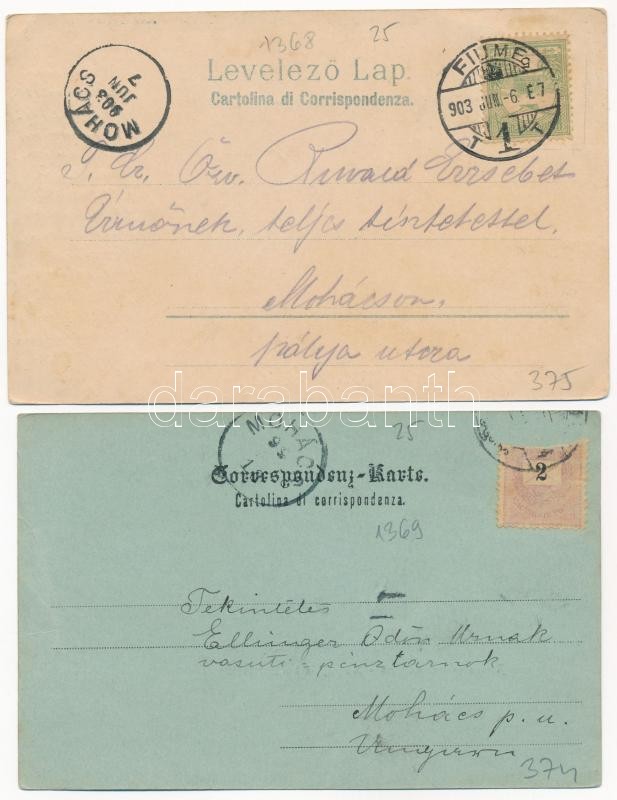 1368
25
MOHÁCS
903
JUN
7
Levelező Lap.
Cartolina di Corrispondenza.
FIUME
903 JUN.-6. E7
T 1 T
Özv.
Úrnőnek, teljes tisztelettel,
Mohácson,
pálya utcza
375
darabanth
MOHÁCS
25
2
Correspondenz-Karte.
Cartolina di corrispondenza.
1369
Tekintetes
Ellinger Ödön Urnak
vasuti-pénztárnok
Mohács p. u.
Ungarn
374